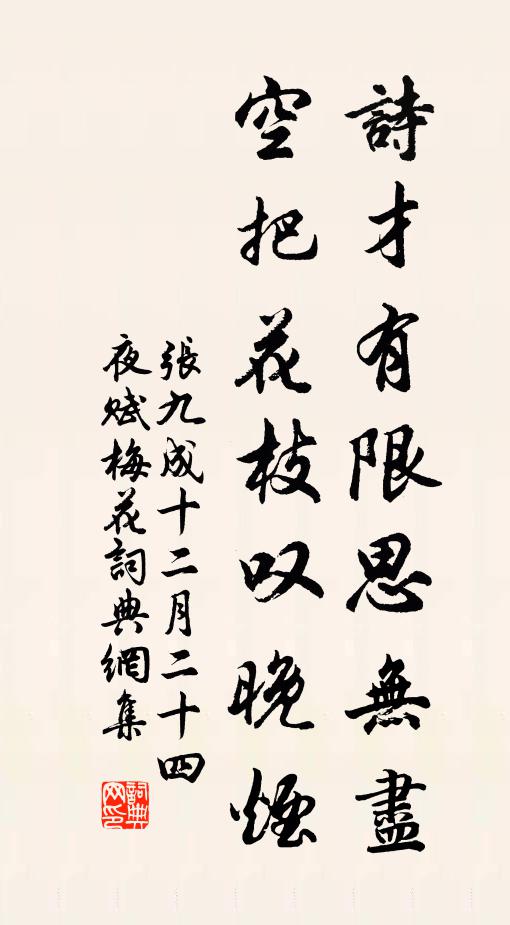 詩才有限思無盡
空把花枝叹晚煙
張九成十二月二十四
夜賦梅花詞典網集
詞典
网印